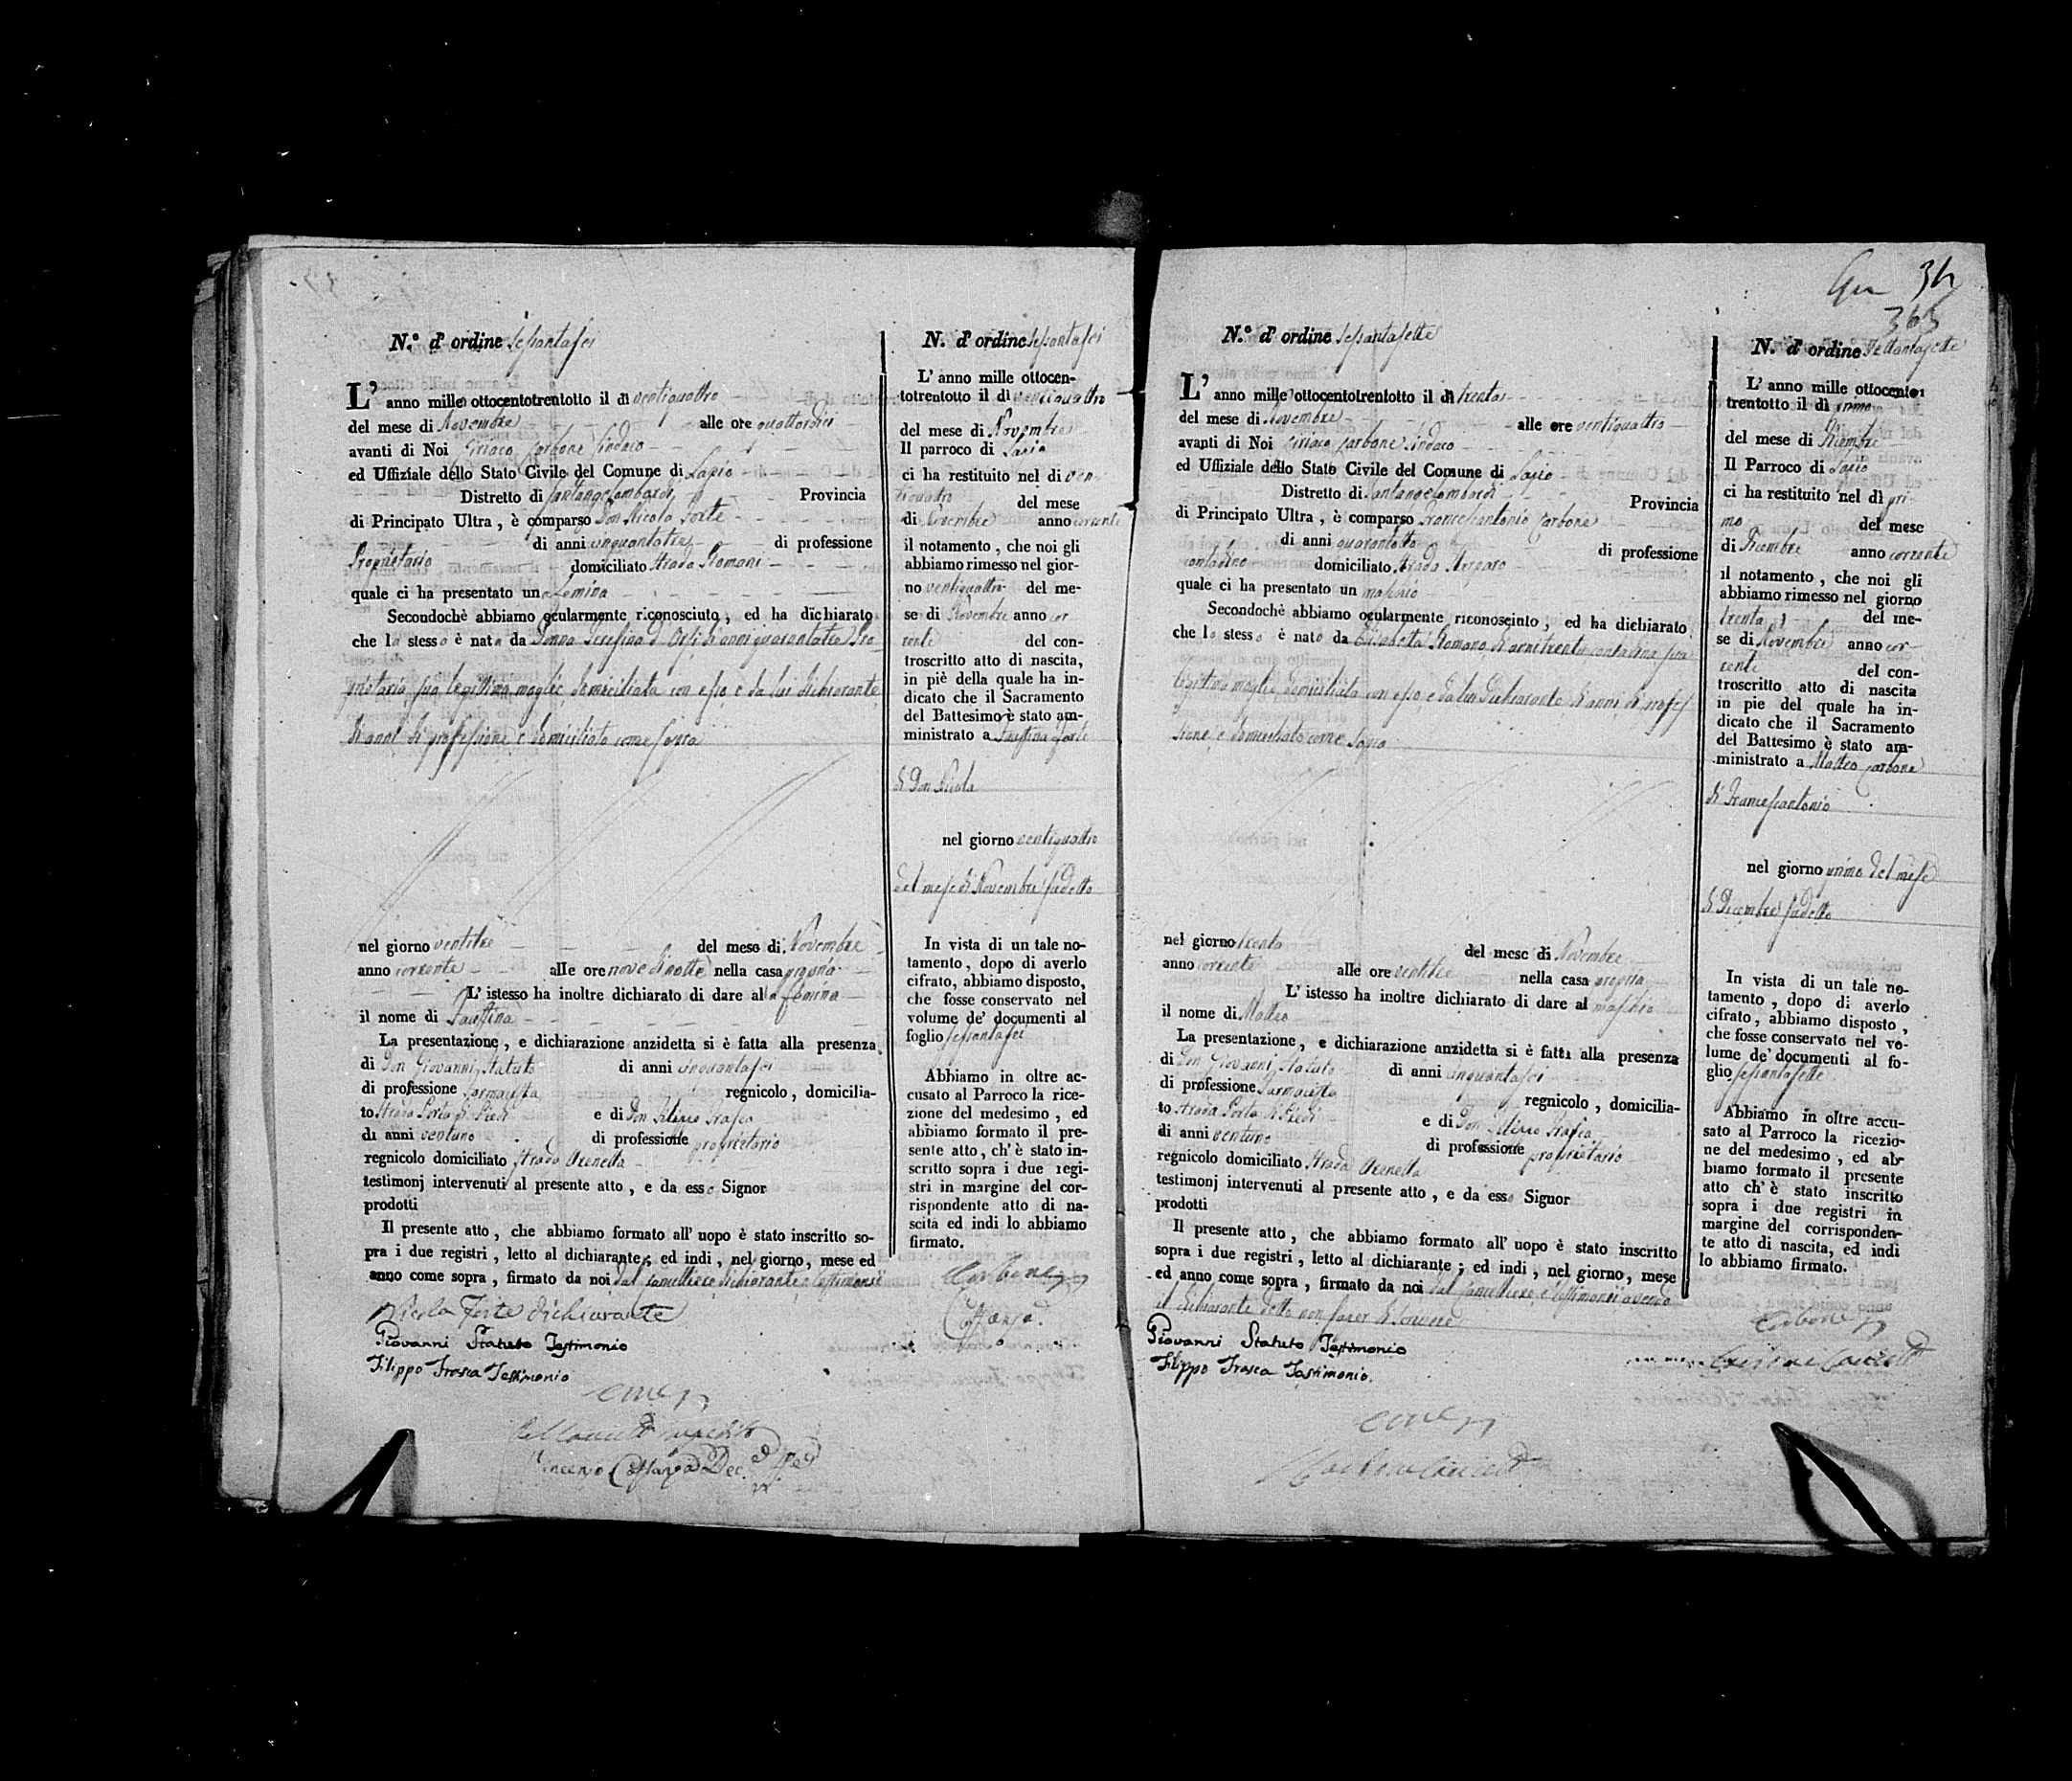 N.° d' ordine Sessantasei
L' anno mille ottocentotrentotto il dì ventiquattro
del mese di Novembre alle ore quattordici
avanti di Noi Ciriaco Carbone Sindaco
ed Uffiziale dello Stato Civile del Comune di Lapio
Distretto di Santangelombardi Provincia
di Principato Ultra, è comparso Don Nicola Forte
di anni cinquantatre di professione
Proprietario domiciliato Strada Romani
quale ci ha presentato una femina
Secondochè abbiamo ocularmente riconosciuto, ed ha dichiarato
che la stessa è nata da Donna Serafina d' Orsi di anni quarantatre Pro
prietaria sua legittima moglie domiciliata con esso e da lui dichiarante
di anni di professione e domiciliato come sopra
nel giorno ventitre del mese di Novembre
anno corrente alle ore nove di notte nella casa propria
L' istesso ha inoltre dichiarato di dare alla femina
il nome di Faustina
La presentazione, e dichiarazione anzidetta si è fatta alla presenza
di Don Giovanni Statuto di anni cinquantasei
di professione Farmacista regnicolo, domicilia-
to Strada Porta di Piedi e di Don Filippo Frasca
di anni ventuno di professione proprietario
regnicolo domiciliato Strada Arenella
testimonj intervenuti al presente atto, e da esso Signor
prodotti
Il presente atto, che abbiamo formato all' uopo è stato inscritto so-
pra i due registri, letto al dichiarante; ed indi, nel giorno, mese ed
anno come sopra, firmato da noi dal Cancelliere dichiarante e testimoni
Nicola Forte dichiarante
Giovanni Statuto Testimonio
Filippo Frasca Testimonio
N. d' ordine Sessantasei
L' anno mille ottocen-
totrentotto il dì ventiquattro
del mese di Novembre
Il parroco di Lapio
ci ha restituito nel dì ven
tiquattro del mese
di Novembre anno corrente
il notamento, che noi gli
abbiamo rimesso nel gior-
no ventiquattro del me-
se di Novembre anno cor
rente del con-
troscritto atto di nascita,
in piè della quale ha in-
dicato che il Sacramento
del Battesimo è stato am-
ministrato a Faustina Forte
di Don Nicola
nel giorno ventiquattro
del mese di Novembre sudetto
In vista di un tale no-
tamento, dopo di averlo
cifrato, abbiamo disposto,
che fosse conservato nel
volume de' documenti al
foglio sessantasei
Abbiamo in oltre ac-
cusato al Parroco la rice-
zione del medesimo, ed
abbiamo formato il pre-
sente atto, ch' è stato in-
scritto sopra i due regi-
stri in margine del cor-
rispondente atto di na-
scita ed indi lo abbiamo
firmato.
Carbone
34
365
N.° d' ordine Sessantasette
L' anno mille ottocentotrentotto il dì trenta
del mese di Novembre alle ore ventiquattro
avanti di Noi Ciriaco Carbone Sindaco
ed Uffiziale dello Stato Civile del Comune di Lapio
Distretto di Santangelombardi Provincia
di Principato Ultra, è comparso Francescantonio Carbone
di anni quarantotto di professione
contadino domiciliato Strada
quale ci ha presentato un maschio
Secondochè abbiamo ocularmente riconosciuto, ed ha dichiarato
che lo stesso è nato da Elisabetta Romano di anni trenta contadina sua
legittima moglie domiciliata con esso e da lui dichiarante di anni di profes
sione e domiciliato come sopra
nel giorno trenta del mese di Novembre
anno corrente alle ore ventitre nella casa propria
L' istesso ha inoltre dichiarato di dare al maschio
il nome di Matteo
La presentazione, e dichiarazione anzidetta si è fatta alla presenza
di Don Giovanni Statuto di anni cinquantasei
di professione Farmacista regnicolo, domicilia-
to Strada Porta di Piedi e di Don Filippo Frasca
di anni ventuno di professione proprietario
regnicolo domiciliato Strada Arenella
testimonj intervenuti al presente atto, e da esso Signor
prodotti
Il presente atto, che abbiamo formato all' uopo è stato inscritto
sopra i due registri, letto al dichiarante; ed indi, nel giorno, mese
ed anno come sopra, firmato da noi dal Cancelliere, e testimoni avendo
il dichiarante detto non saper di scrivere
Giovanni Statuto Testimonio
Filippo Frasca Testimonio.
N. d' ordine Sessantasette
L' anno mille ottocento-
trentotto il dì primo
del mese di Dicembre
Il Parroco di Lapio
ci ha restituito nel dì pri-
mo del mese
di Dicembre anno corrente
il notamento, che noi gli
abbiamo rimesso nel giorno
trenta del me-
se di Novembre anno cor-
rente del con-
troscritto atto di nascita
in pie del quale ha in-
dicato che il Sacramento
del Battesimo è stato am-
ministrato a Matteo Carbone
di Francescantonio
nel giorno primo del mese
di Dicembre sudetto
In vista di un tale no-
tamento, dopo di averlo
cifrato, abbiamo disposto,
che fosse conservato nel vo-
lume de' documenti al fo-
glio sessantasette
Abbiamo in oltre accu-
sato al Parroco la ricezio-
ne del medesimo, ed ab-
biamo formato il presente
atto ch' è stato inscritto
sopra i due registri in
margine del corrisponden-
te atto di nascita, ed indi
lo abbiamo firmato.
Carbone